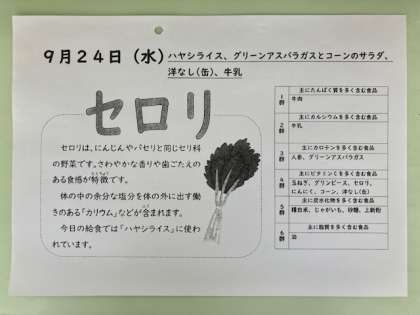 9月24日（水）
ハヤシライス、グリーンアスパラガスとコーンのサラダ、
洋なし(缶)、牛乳
セロリ
セロリは、にんじんやパセリと同じセリ科
の野菜です。さわやかな香りや歯ごたえの
ある食感が特徴です。
体の中の余分な塩分を体の外に出す働
きのある「カリウム」などが含まれます。
今日の給食では「ハヤシライス」に使わ
れています。
主にたんぱく質を多く含む食品
1群
牛肉
主にカルシウムを多く含む食品
2群
牛乳
主にカロテンを多く含む食品
3群
人参、グリーンアスパラガス
主にビタミンCを多く含む食品
4群
玉ねぎ、グリンピース、セロリ、
にんにく、コーン、洋なし(缶)
主に炭水化物を多く含む食品
5群
精白米、じゃがいも、砂糖、上新粉
主に脂質を多く含む食品
6群
油